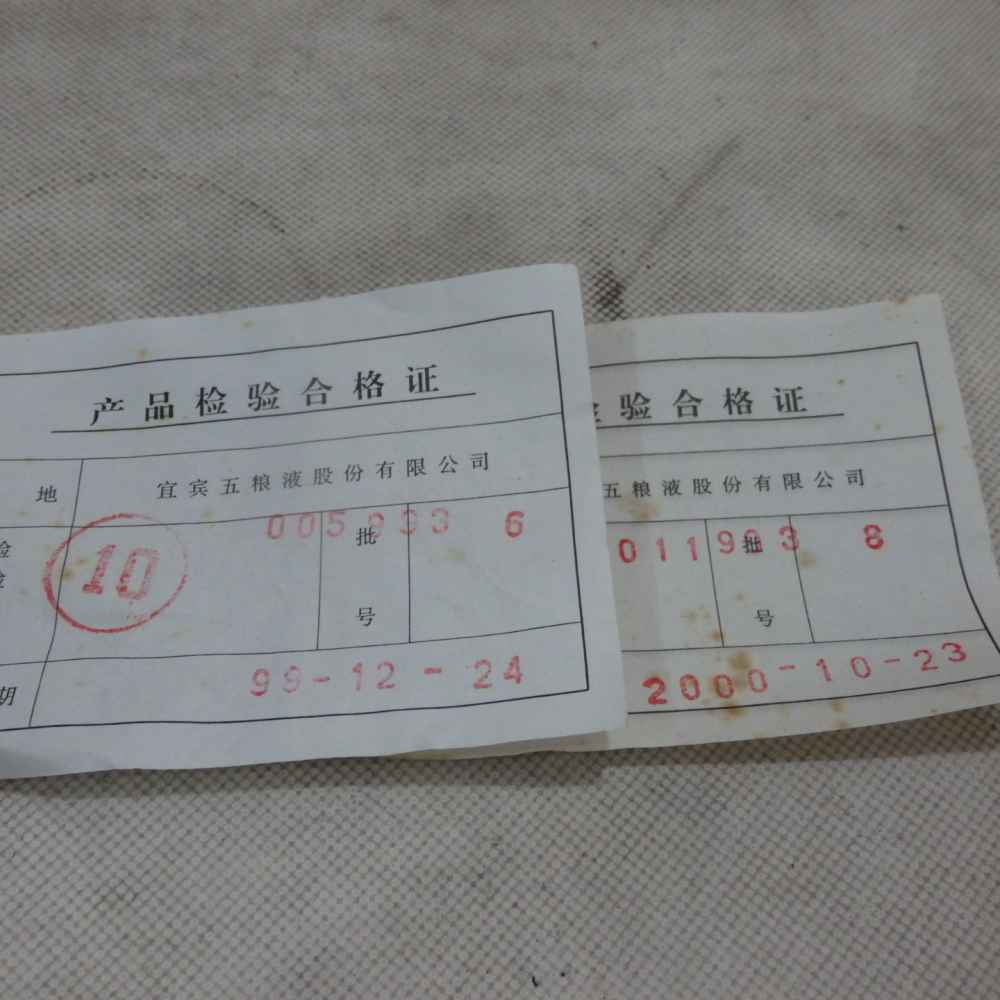 产品检验合格证
地 宜宾五粮液股份有限公司
检 005933 批 6
检 10 号
期 99-12-24
验合格证
五粮液股份有限公司
011903 批 8
号
2000-10-23